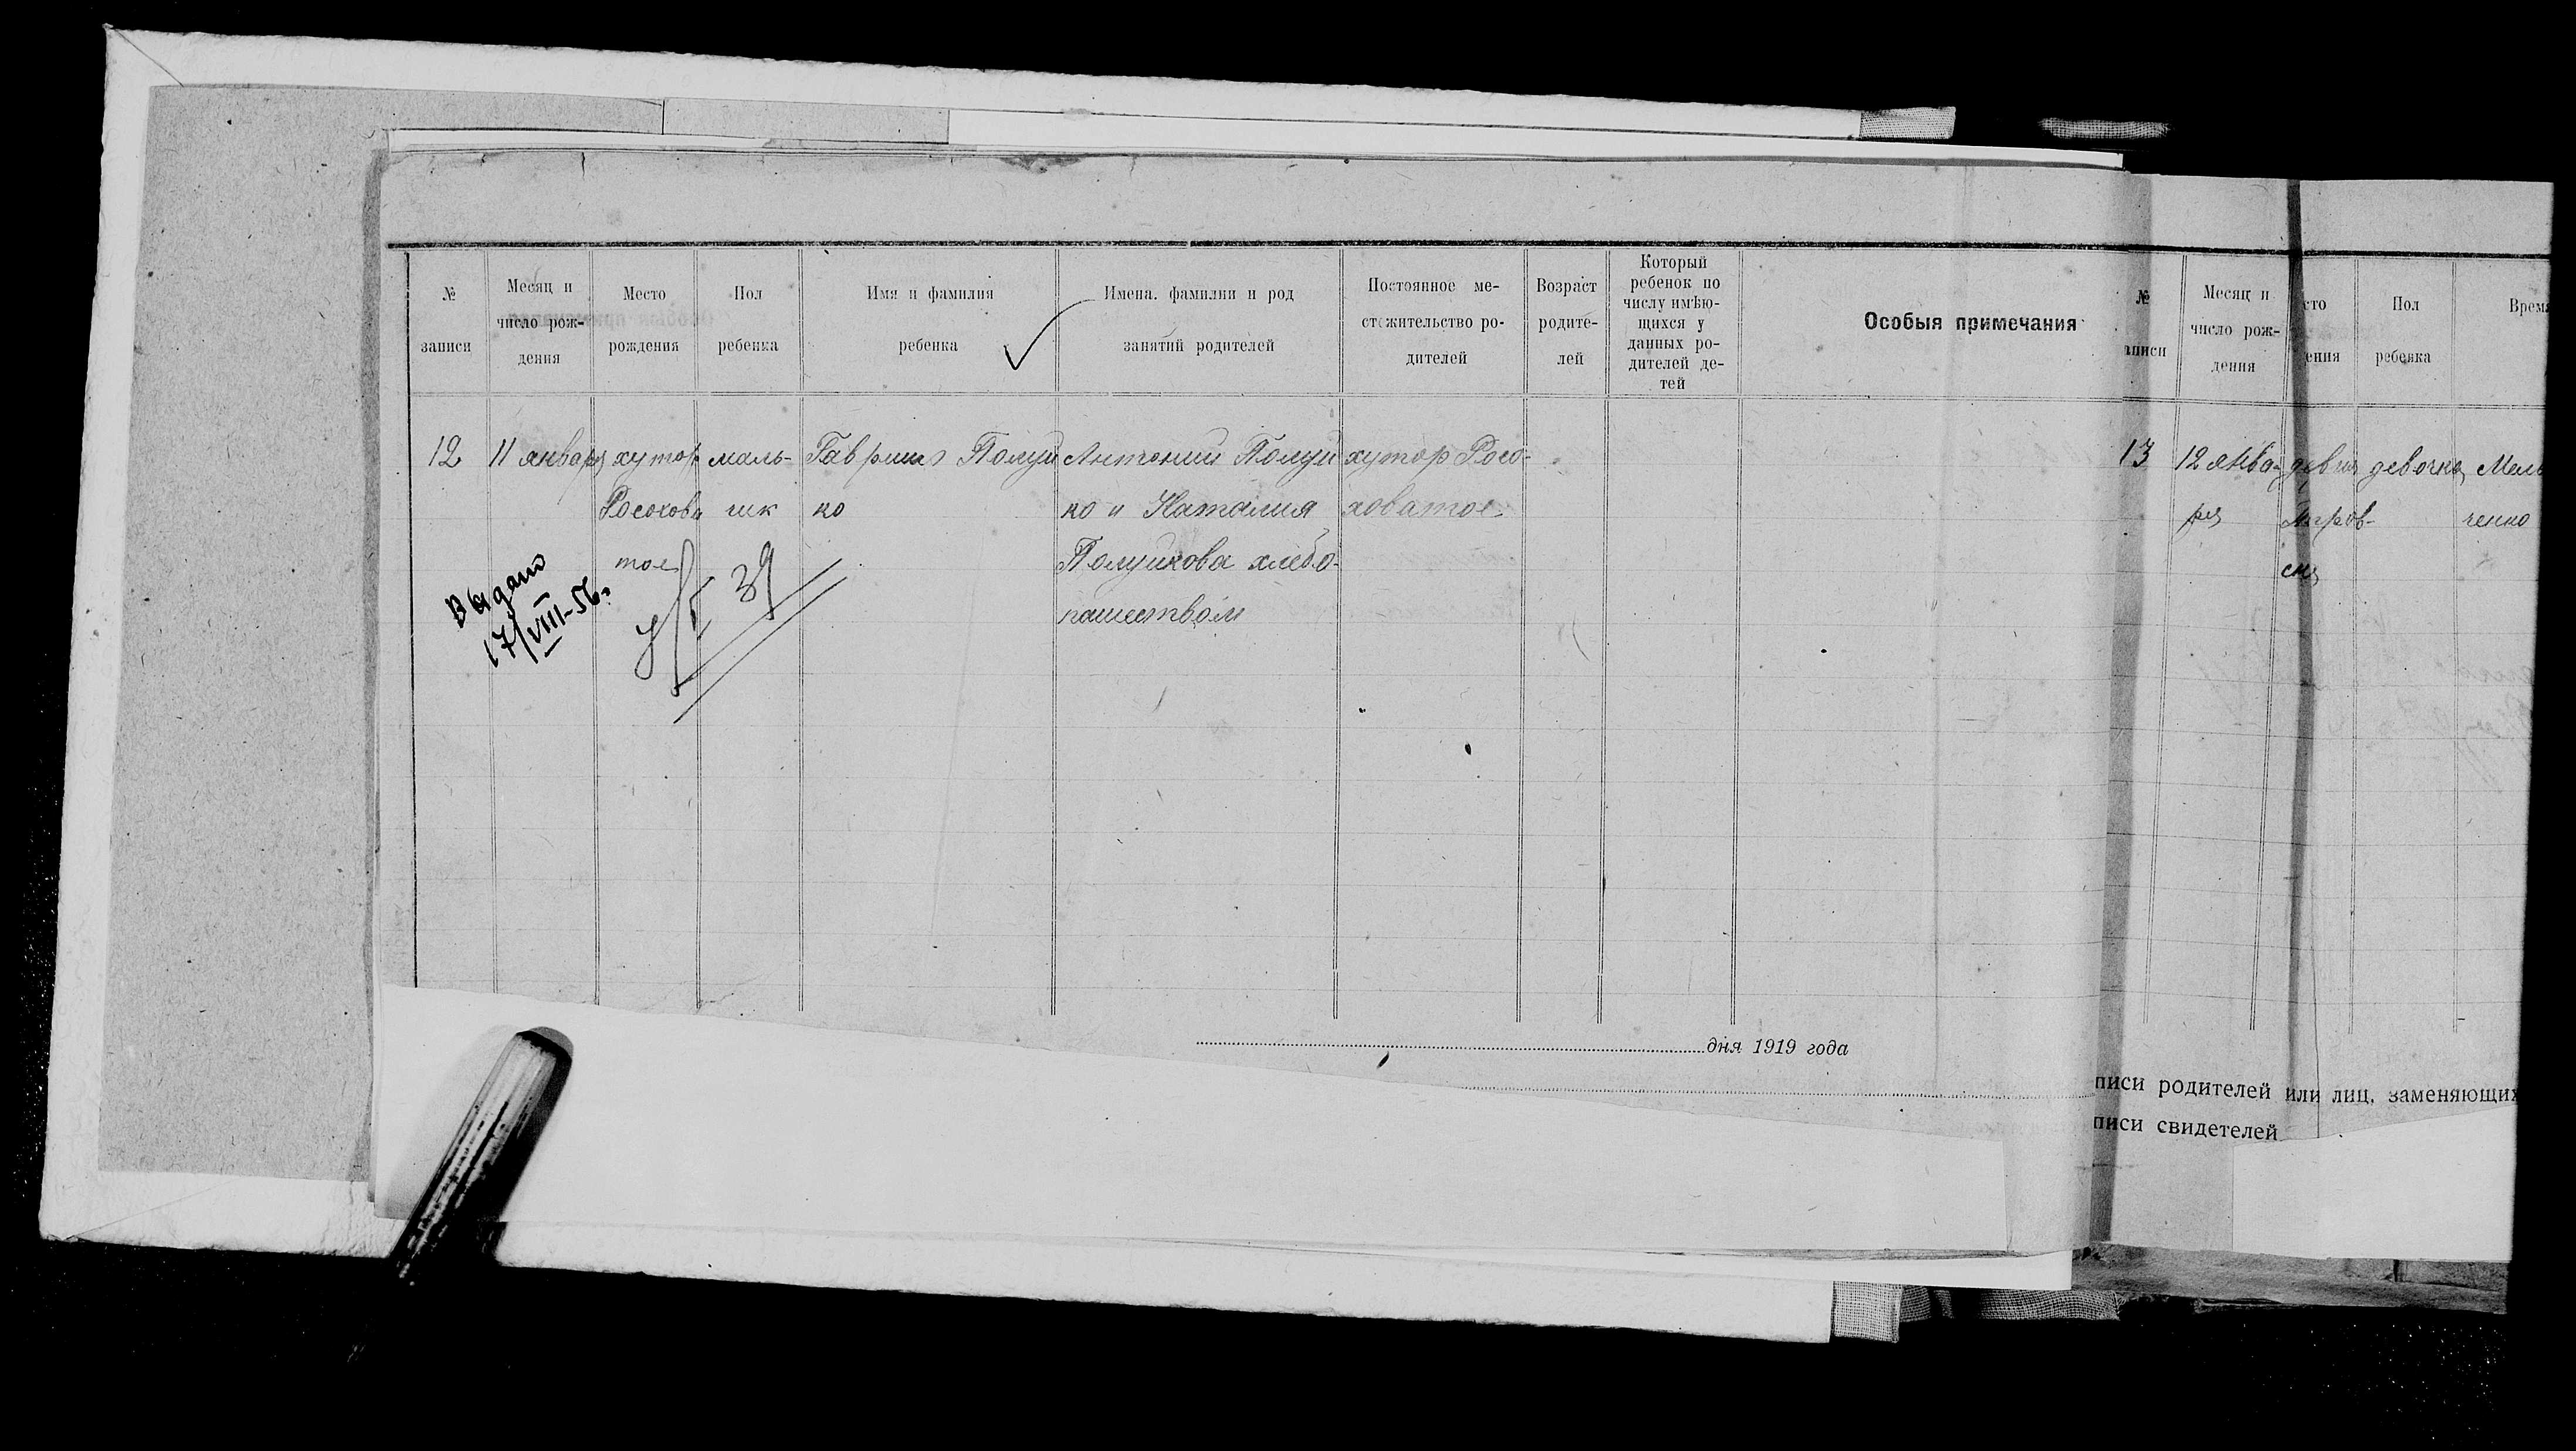 № записи
Месяц и число рождения
Место рождения
Пол ребенка
Имя и фамилия ребенка
Имена. фамилии и род занятий родителей
Постоянное местожительство родителей
Возраст родителей
Который ребенок по числу имѣющихся у данных родителей детей
Особыя примечания
12
11 января
хутор
Росохова
тое
маль-
чик
Гавриил Полуй
ко
Антоний Полуй
ко и Наталия
Полуйкова хлебо-
пашеством
хутор Росо-
ховатое
Выдано
17/VIII-56г.
39
дня 1919 года
№
аписи
Месяц и
число рож-
дения
сто
ения
Пол
ребенка
Время
13
12 янва-
ря
девочка
Мель
ченко
писи родителей или лиц, заменяющих
писи свидетелей